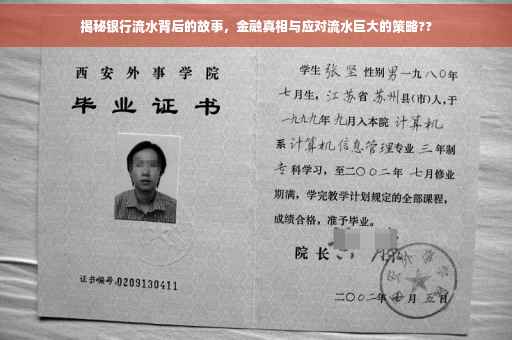 揭秘银行流水背后的故事，金融真相与应对流水巨大的策略??
西安外事学院
毕业证书
证书编号:0209130411
学生 张坚 性别 男 一九八〇年
七月生，江苏省 苏州县(市)人,于
一九九九年 九月入本院 计算机
系 计算机信息管理专业 三 年制
专 科学习，至二〇〇二年 七月修业
期满，学完教学计划规定的全部课程，
成绩合格，准予毕业。
院长
二〇〇二年 七 月 五 日